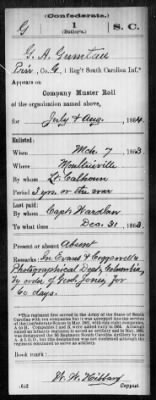 (Confederate.)
G 1 S. C.
(Butler's)
G. A. Gumtau
Priv, Co. G, 1 Reg't South Carolina Inf.*
Appears on
Company Muster Roll
of the organization named above,
for July & Aug, 1864.
Enlisted:
When Mch. 7 1863
Where Moultrieville
By Lt. Calhoun
Period 3 yrs. or the war
Last paid:
By Capt. Wardlaw
To what time Dec. 31 1863
Present or absent Absent
Remarks: In Evans & Cogswell's
Photographical Dept, Columbia,
by order of Genl. Jones, for
60 days.
Book mark:
W. H. Hibbary
(642) Copyist.